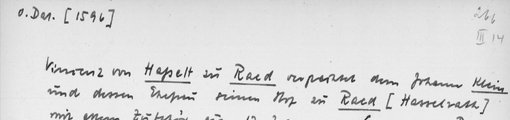 o. Dat. [1596]
266
III 14
Vinzenz von Hasselt zu Raed verpachtet dem Johann Klein
und dessen Ehefrau seinen Hof zu Raed [Hasselrath]
mit allem Zubehör